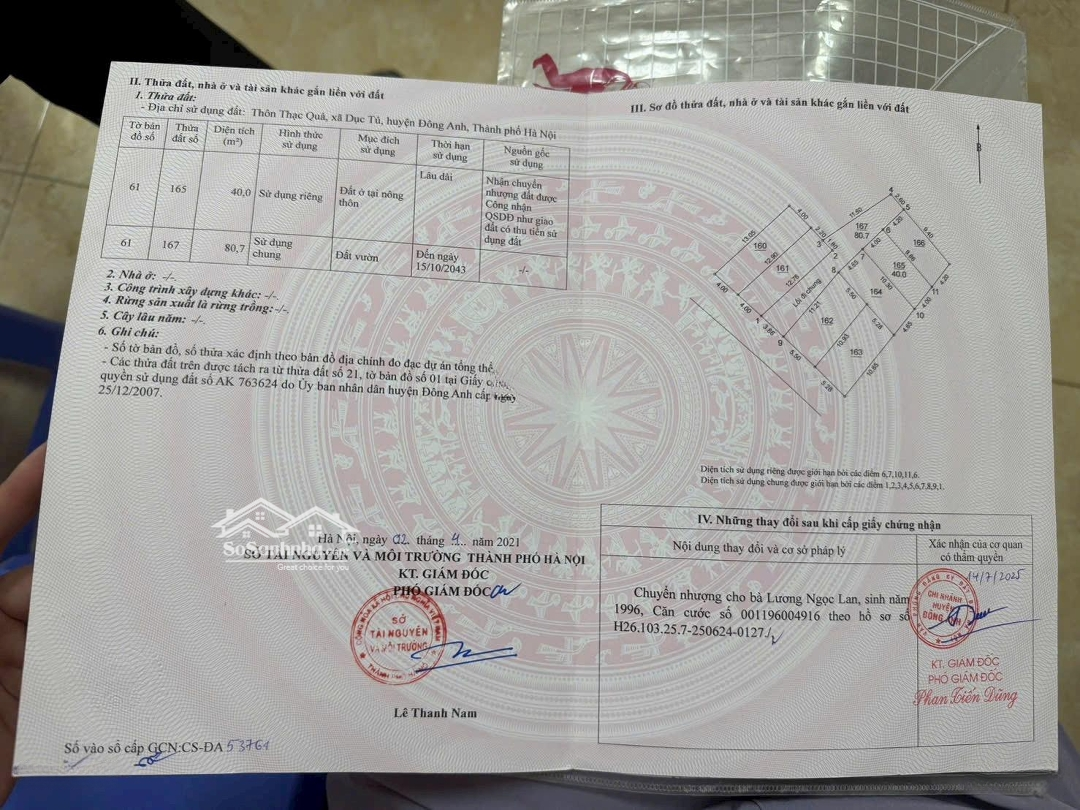 II. Thửa đất, nhà ở và tài sản khác gắn liền với đất
1. Thửa đất:
- Địa chỉ sử dụng đất: Thôn Thạc Quả, xã Dục Tú, huyện Đông Anh, Thành phố Hà Nội
Tờ bản đồ số Thửa đất số Diện tích (m²) Hình thức sử dụng Mục đích sử dụng Thời hạn sử dụng Nguồn gốc sử dụng
61 165 40,0 Sử dụng riêng Đất ở tại nông thôn Lâu dài Nhận chuyển nhượng đất được Công nhận QSDĐ như giao đất có thu tiền sử dụng đất
61 167 80,7 Sử dụng chung Đất vườn Đến ngày 15/10/2043 -/-
2. Nhà ở: -/-
3. Công trình xây dựng khác: -/-.
4. Rừng sản xuất là rừng trồng: -/-.
5. Cây lâu năm: -/-.
6. Ghi chú:
- Số tờ bản đồ, số thửa xác định theo bản đồ địa chính đo đạc dự án tổng thể.
- Các thửa đất trên được tách ra từ thửa đất số 21, tờ bản đồ số 01 tại Giấy
quyền sử dụng đất số AK 763624 do Ủy ban nhân dân huyện Đông Anh cấp
25/12/2007.
Hà Nội, ngày 02 tháng 4 năm 2021
SỞ TÀI NGUYÊN VÀ MÔI TRƯỜNG THÀNH PHỐ HÀ NỘI
KT. GIÁM ĐỐC
PHÓ GIÁM ĐỐC
SỞ
TÀI NGUYÊN
VÀ MÔI TRƯỜNG
Lê Thanh Nam
Số vào sổ cấp GCN:CS-ĐA 53761
SoSanhnha
Great choice for you
III. Sơ đồ thửa đất, nhà ở và tài sản khác gắn liền với đất
B
4
2.60
5
4.00
11.60
4.20
13.05
2.20
1.60
167
80.7
6
166
9.40
160
3
4.00
2
12.90
7
8.86
165
40.0
4.20
161
8
4.65
10.30
164
11
12.76
Lối đi chung
4.00
4.00
5.50
10
4.00
1
11.21
5.28
4.65
3.86
162
9
10.93
163
5.50
10.65
5.28
Diện tích sử dụng riêng được giới hạn bởi các điểm 6,7,10,11,6.
Diện tích sử dụng chung được giới hạn bởi các điểm 1,2,3,4,5,6,7,8,9,1.
IV. Những thay đổi sau khi cấp giấy chứng nhận
Nội dung thay đổi và cơ sở pháp lý
Xác nhận của cơ quan
có thẩm quyền
Chuyển nhượng cho bà Lương Ngọc Lan, sinh năm
1996, Căn cước số 001196004916 theo hồ sơ số
H26.103.25.7-250624-0127./.
14/7/2025
CHI NHÁNH
HUYỆN
ĐÔNG ANH
KT. GIÁM ĐỐC
PHÓ GIÁM ĐỐC
Phan Tiến Dũng